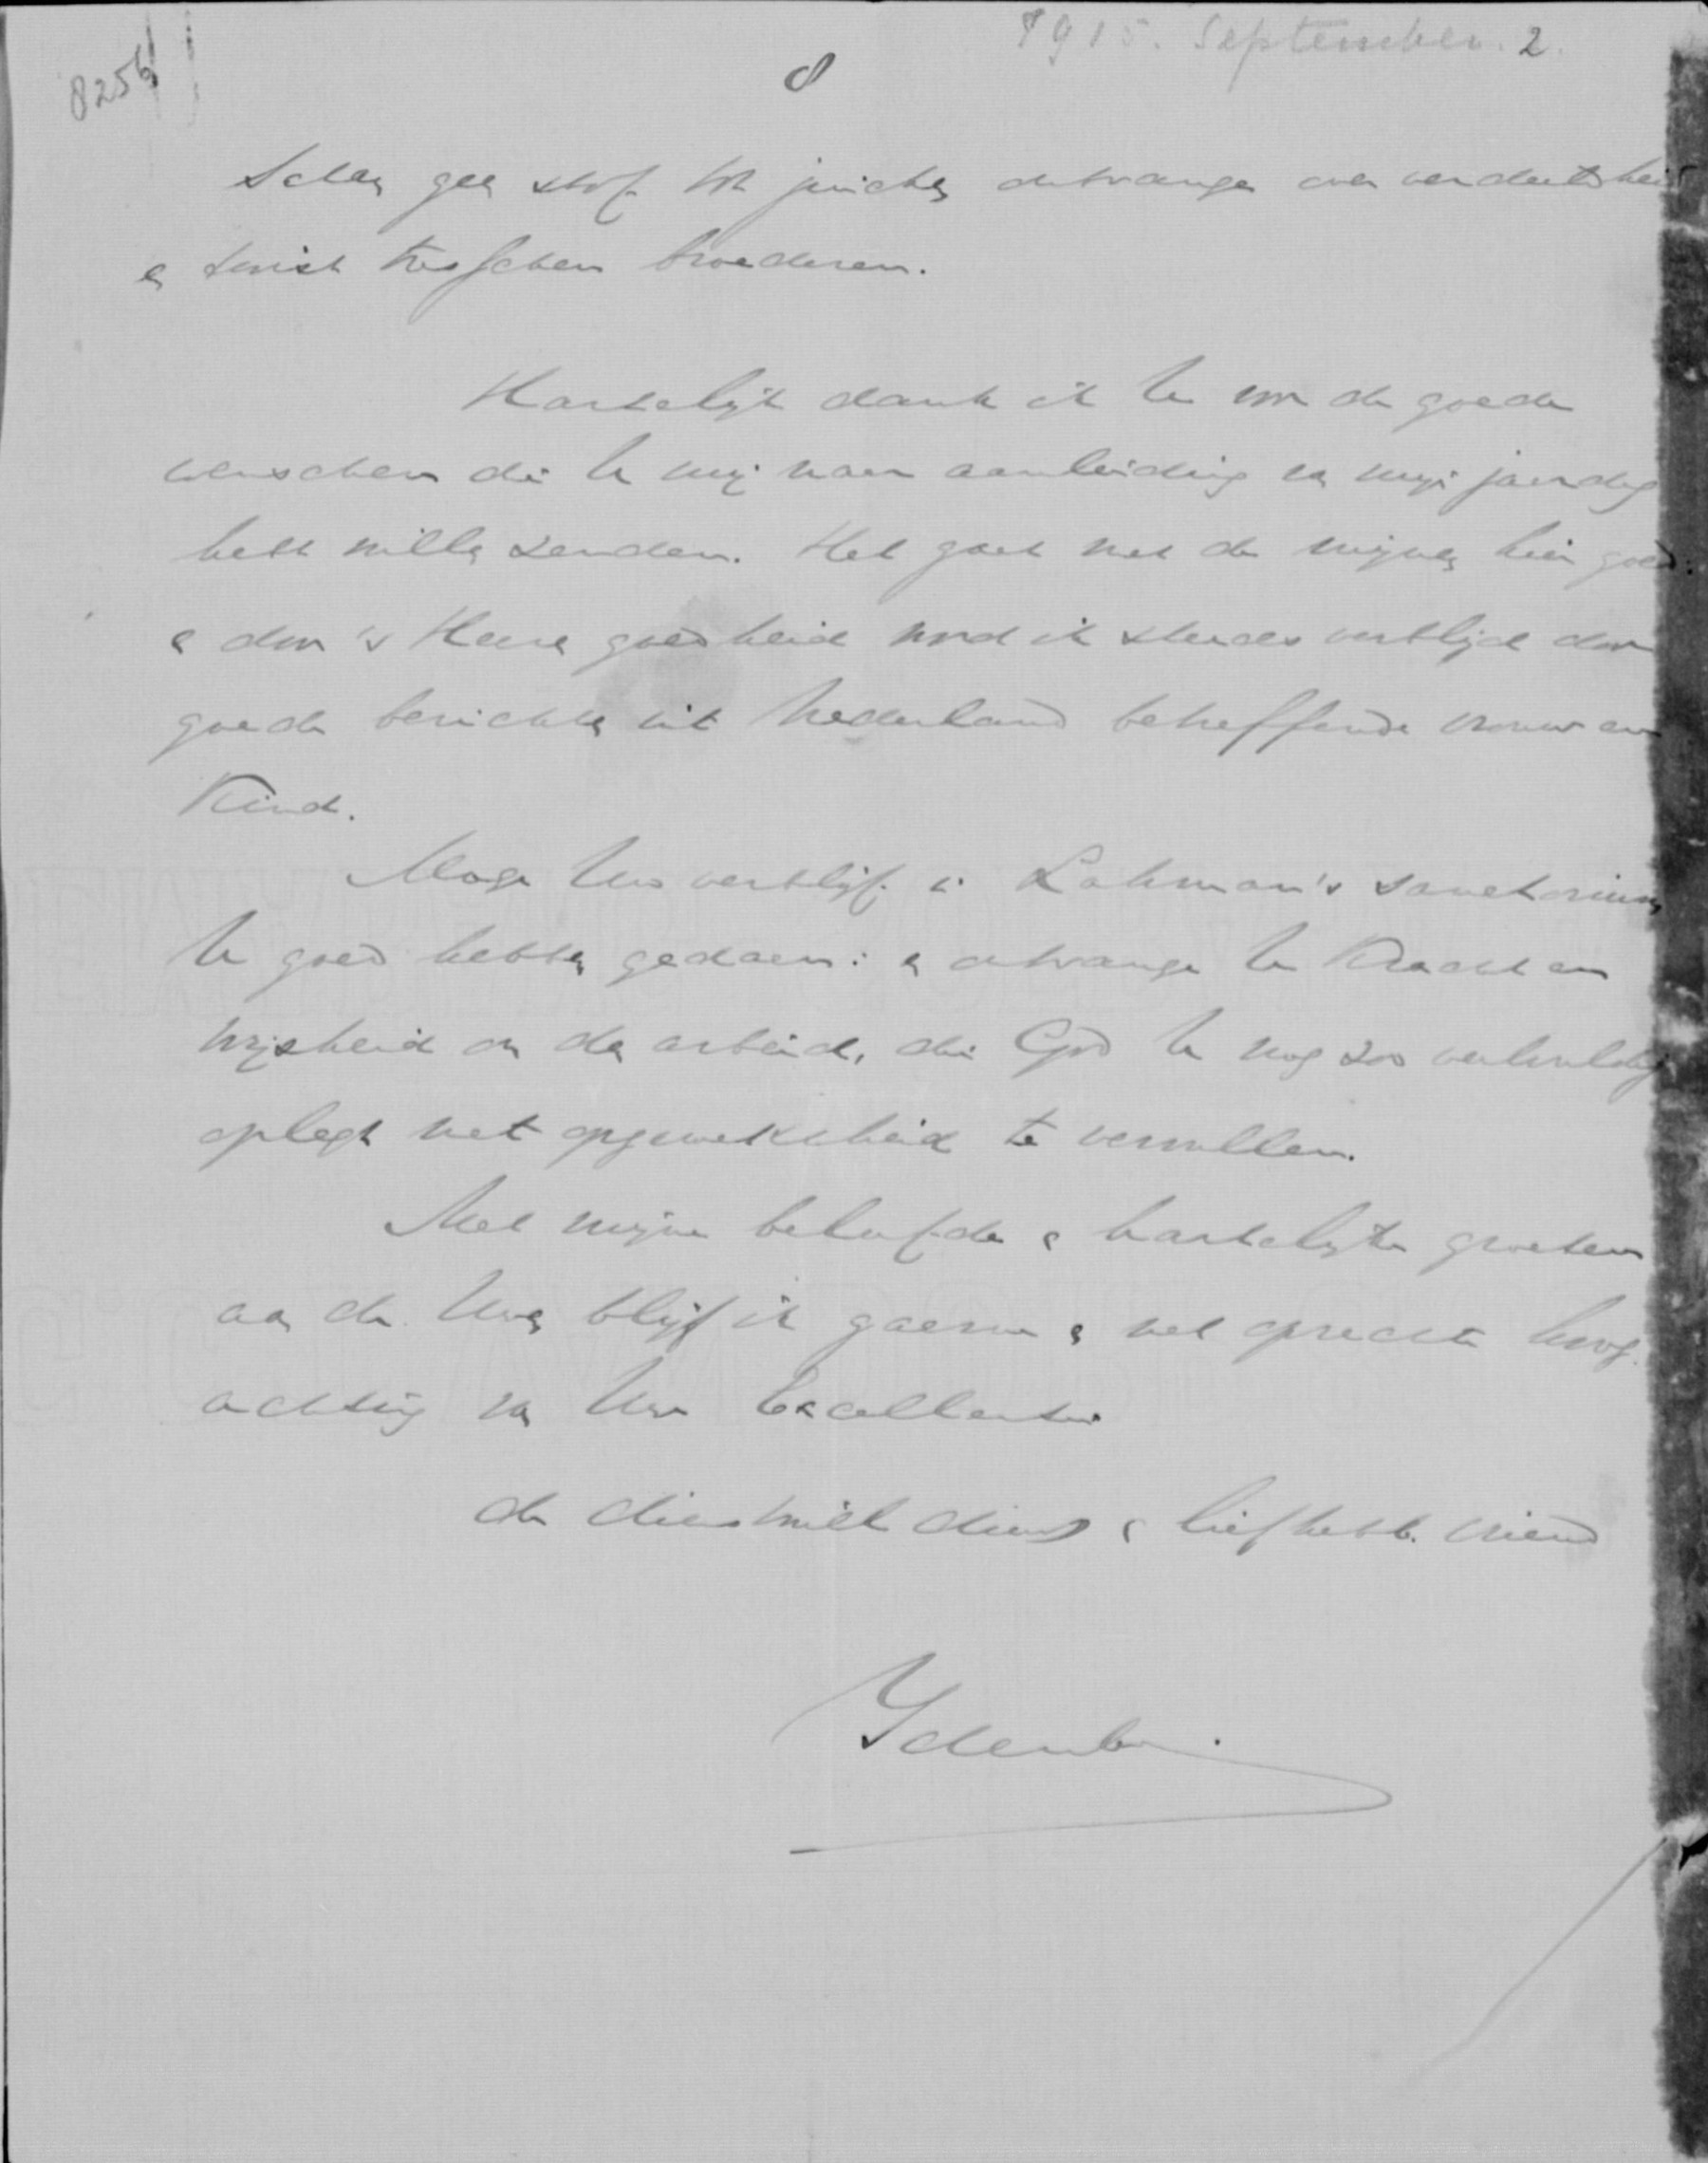 1915. September. 2.
8256
8
Schen geen stof tot juichen ontvange over verdeeldheid
en twist tusschen broederen.
Hartelijk dank ik U voor de goede
wenschen die U mij naar aanleiding van mijn jaardag
hebt willen zenden. Het gaat met de mijnen hier goed:
en door 's Heeren goedheid word ik steeds verblijd door
goede berichten uit Nederland betreffende vrouw en
Kind.
Moge Uw verblijf in Lahman's sanatorium
U goed hebben gedaan: en ontvange U Kracht en
wijsheid om den arbeid, die God U nog zoo veelvuldig
oplegt met opgewektheid te vervullen.
Met mijne beleefde en hartelijke groeten
aan de Uwen blijf ik gaarne en met oprechte hoog-
achting van Uwe Excellentie
de dienstwill. dienr en liefhebb. vriend
Idenburg.